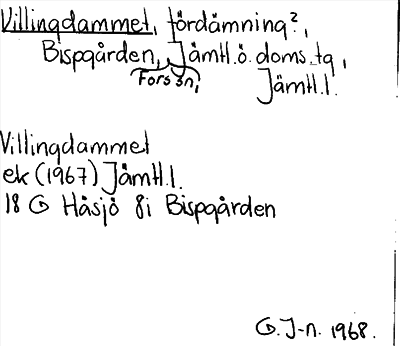 Villingdammet, fördämning?,
Bispgården, Jämtl.ö.doms.tg,
Fors sn,
Jämtl.l.
Villingdammet
ek (1967) Jämtl.l.
18 G Håsjö 8i Bispgården
G. J-n. 1968.